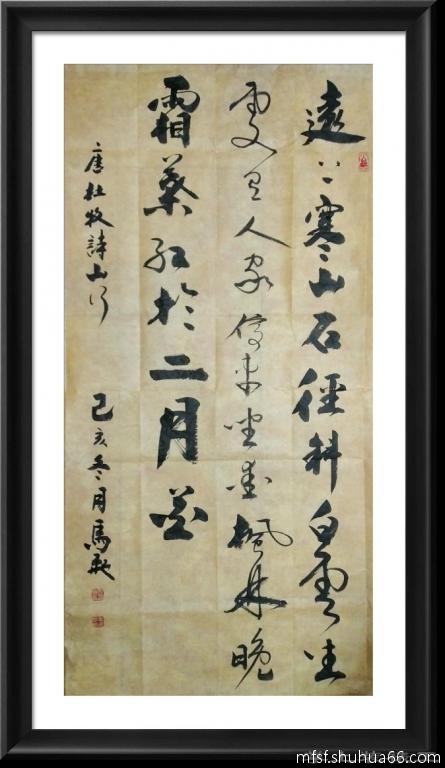 遠上寒山石徑斜白雲生
處有人家停車坐愛楓林晚
霜葉紅於二月花
唐杜牧詩山行 己亥冬月馬
mfsf.shuhua66.com